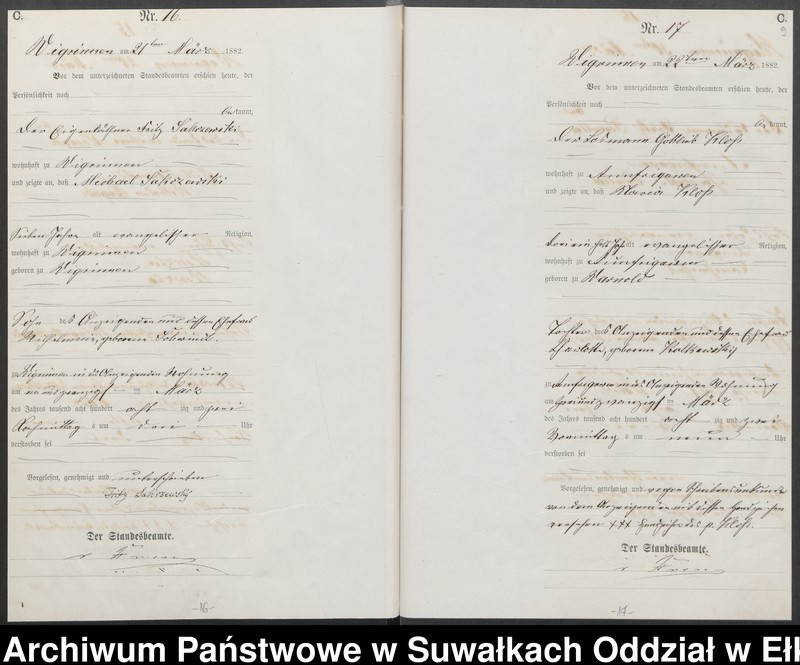 C.
Nr. 16.
Wigrinnen am 21ten März 1882.
Vor dem unterzeichneten Standesbeamten erschien heute, der
Persönlichkeit nach
bekannt,
der Eigenkäthner Fritz Sakrzewski
wohnhaft zu Wigrinnen
und zeigte an, daß Michael Sakrzewski
Sieben Jahre alt evangelischer Religion,
wohnhaft zu Wigrinnen
geboren zu Wigrinnen
Sohn des Anzeigenden und dessen Ehefrau
Wilhelmine, geborene
zu Wigrinnen in des Anzeigenden Wohnung
am einundzwanzigsten März
des Jahres tausend acht hundert achtzig und zwei
Nachmittag s um drei Uhr
verstorben sei
Vorgelesen, genehmigt und unterschrieben
Fritz Sakrzewski
Der Standesbeamte.
-16-
C.
Nr. 17
Wigrinnen am 22ten März 1882.
Vor dem unterzeichneten Standesbeamten erschien heute, der
Persönlichkeit nach
bekannt,
der Losmann Gottlieb Kloß
wohnhaft zu
und zeigte an, daß Maria Kloß
alt evangelischer Religion,
wohnhaft zu
geboren zu Warnold
Tochter des Anzeigenden und dessen Ehefrau
Charlotte, geborene
zu in des Anzeigenden Wohnung
am zweiundzwanzigsten März
des Jahres tausend acht hundert achtzig und zwei
Vormittag s um neun Uhr
verstorben sei
Vorgelesen, genehmigt und wegen Schreibensunkunde
von dem Anzeigenden mit dessen Handzeichen
versehen +++ Handzeichen des p. Kloß.
Der Standesbeamte.
-17-
Archiwum Państwowe w Suwałkach Oddział w Eł